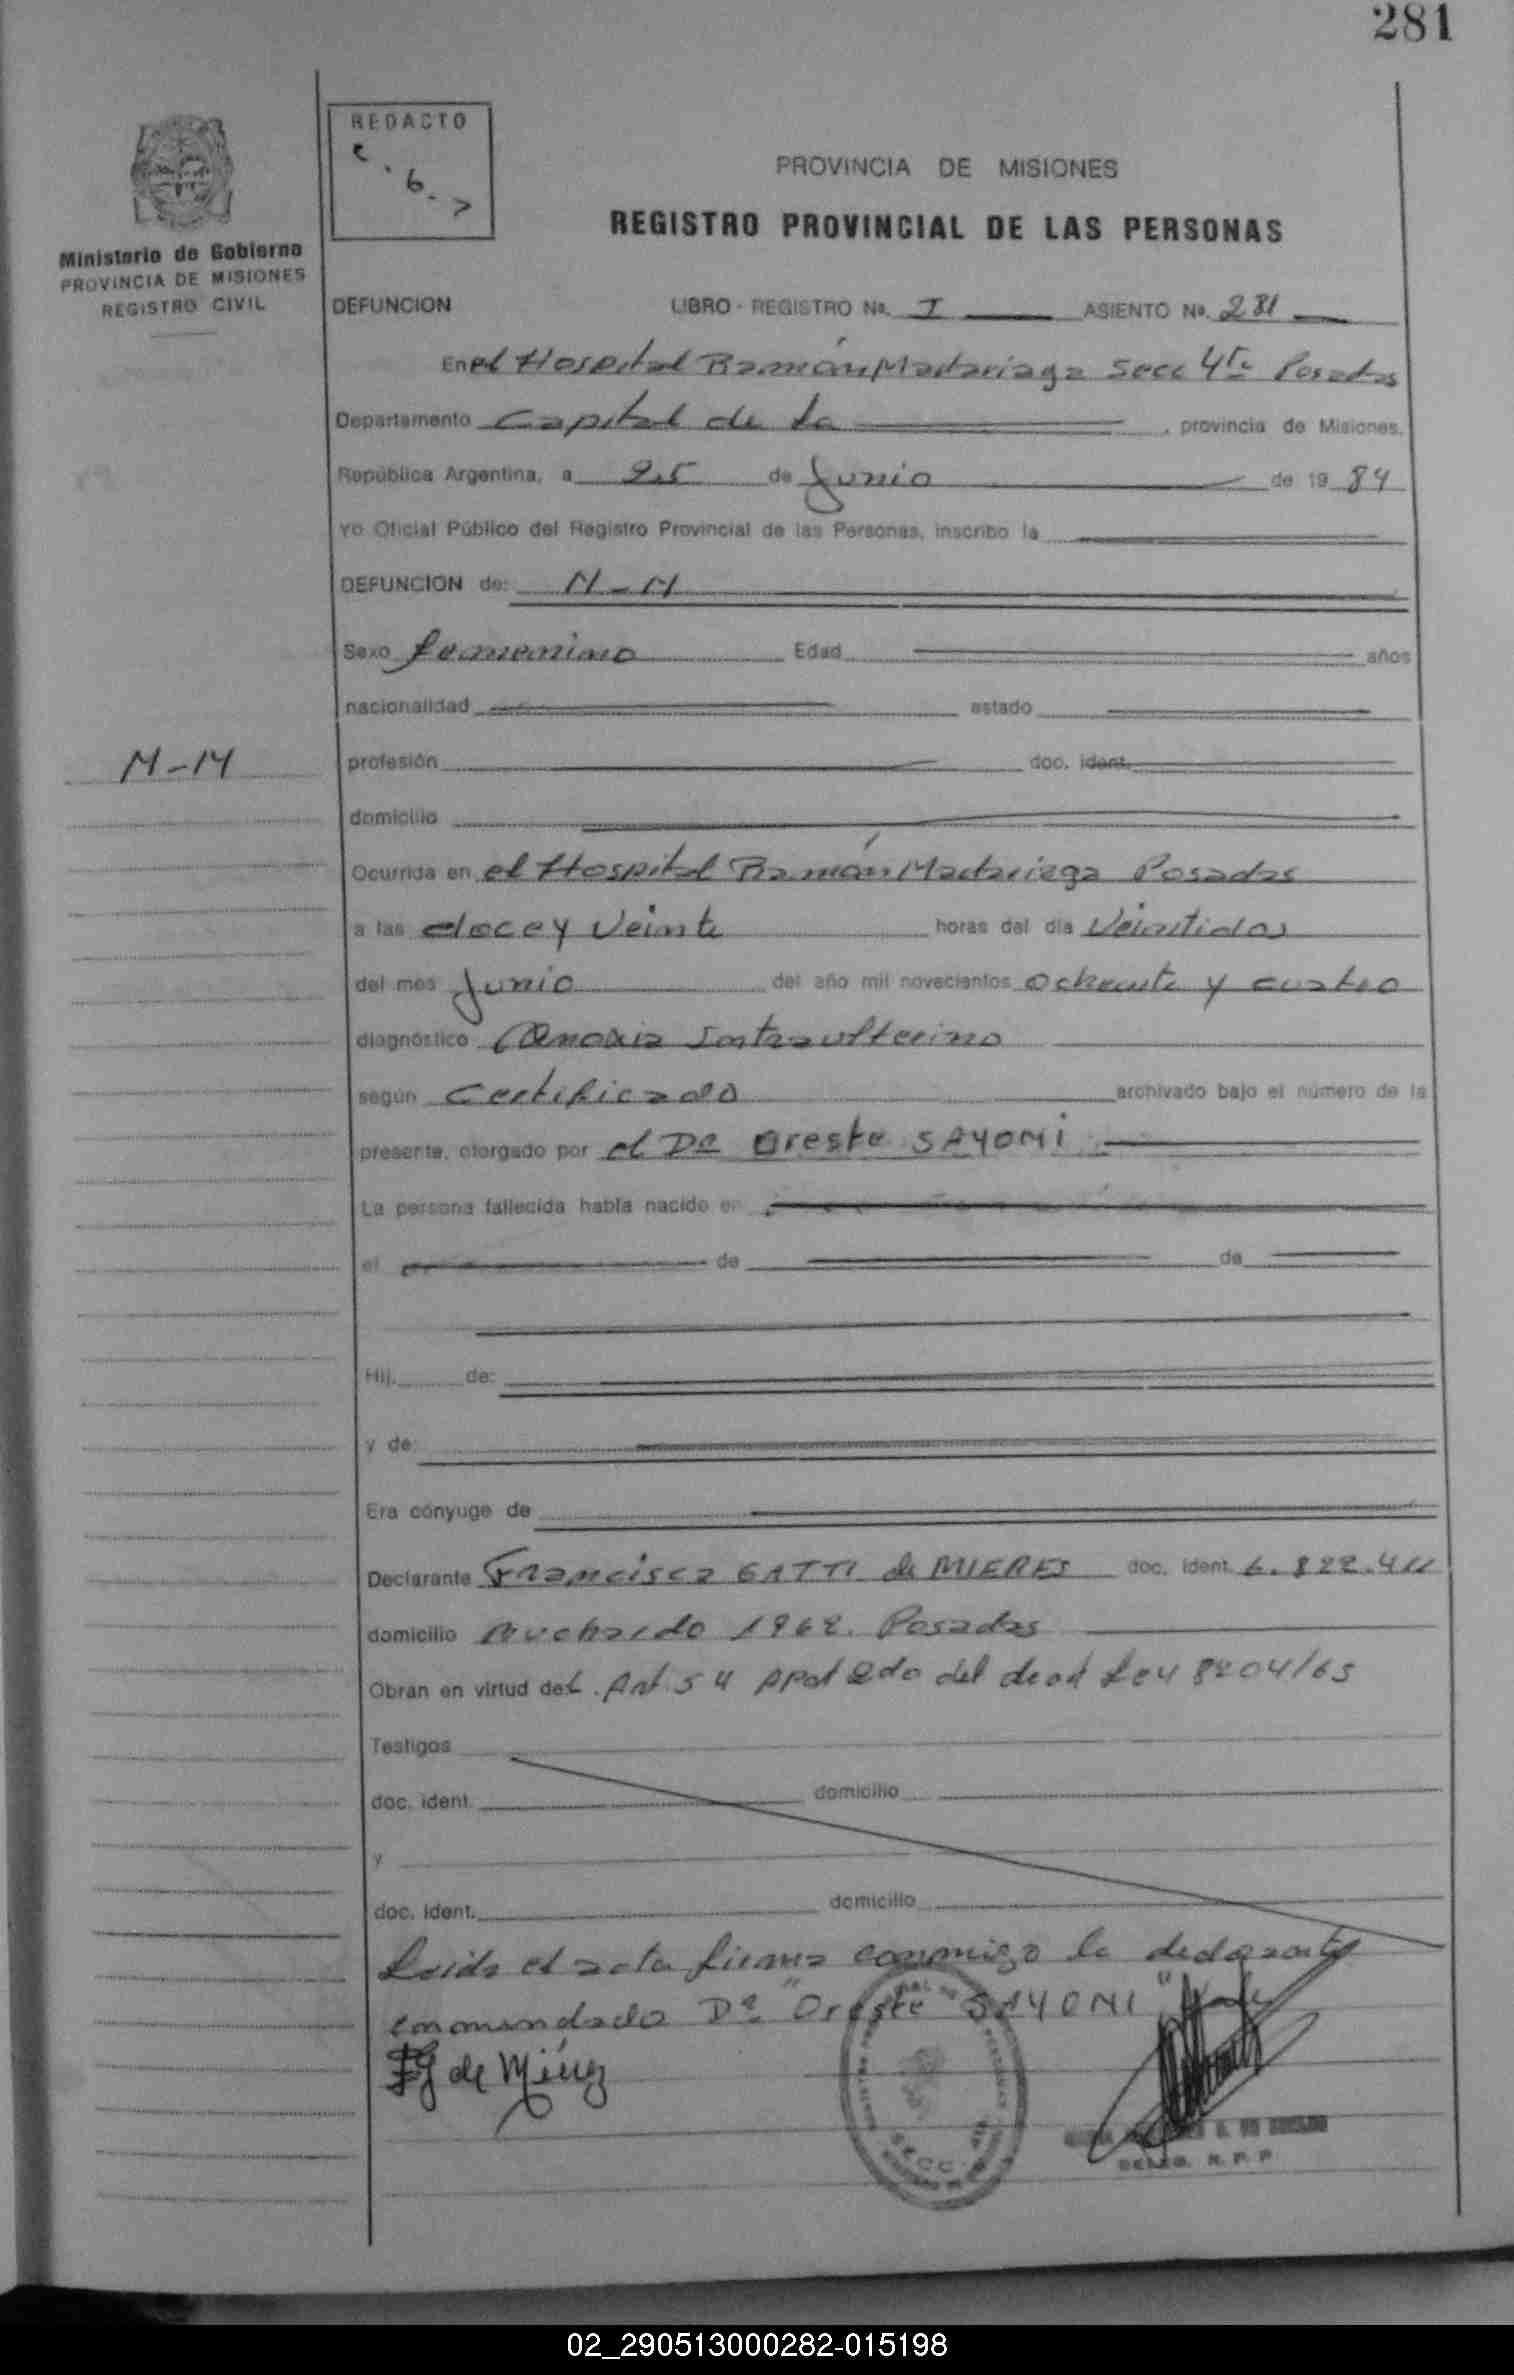 281
REDACTO
C. 6. >
PROVINCIA DE MISIONES
REGISTRO PROVINCIAL DE LAS PERSONAS
Ministerio de Gobierno
PROVINCIA DE MISIONES
REGISTRO CIVIL
DEFUNCION LIBRO - REGISTRO Nº. I ASIENTO Nº. 281
En el Hospital Ramón Madariaga Secc 4ta Posadas
Departamento Capital de la , provincia de Misiones.
República Argentina, a 25 de Junio de 19 84
Yo Oficial Público del Registro Provincial de las Personas, inscribo la
DEFUNCION de: N-N
Sexo femenino Edad años
nacionalidad estado
N-N
profesión doc. ident.
domicilio
Ocurrida en el Hospital Ramón Madariaga Posadas
a las doce y Veinte horas del día Veintidos
del mes Junio del año mil novecientos ochenta y cuatro
diagnóstico Anoxia Intraulterino
según Certificado archivado bajo el número de la
presente, otorgado por el Dr Oreste SAYOMI
La persona fallecida había nacido en
el de de
Hij. de:
y de:
Era cónyuge de
Declarante Francisca GATTI de MIERES doc. ident. 6.822.411
domicilio 1962. Posadas
Obran en virtud del. Art 54 Apat 2do del decret Ley 8204/63
Testigos
doc. ident. domicilio
y
doc. ident. domicilio
Leida el acta firma conmigo la declarante
enmendado Dr "Oreste SAYOMI"
de Mieres
SECC.
DELEG. R. P. P.
02_290513000282-015198